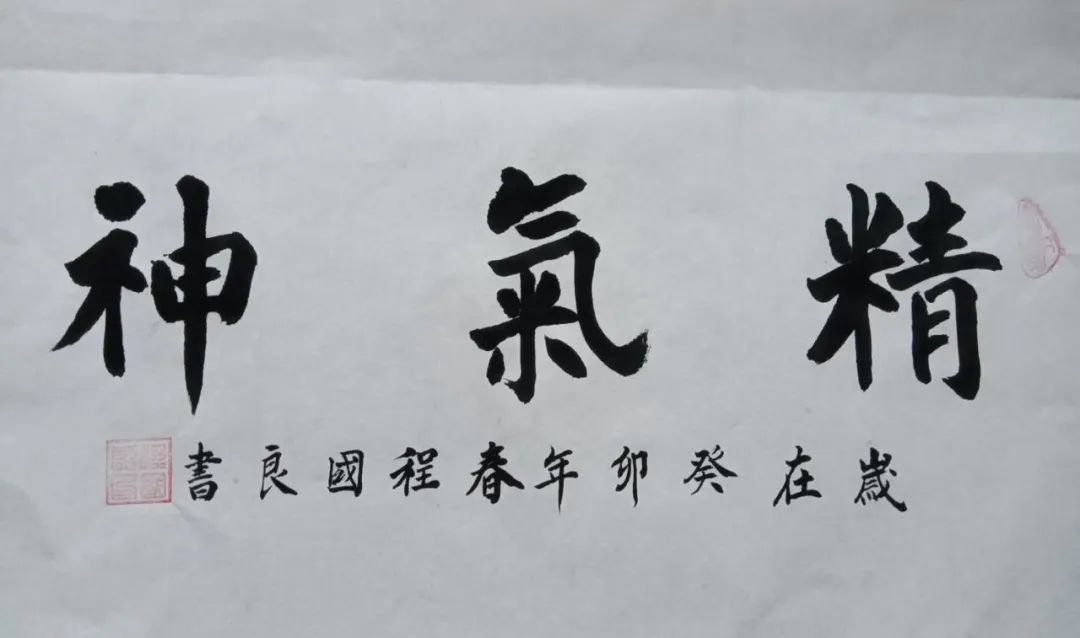 精氣神
歲在癸卯年春程國良書